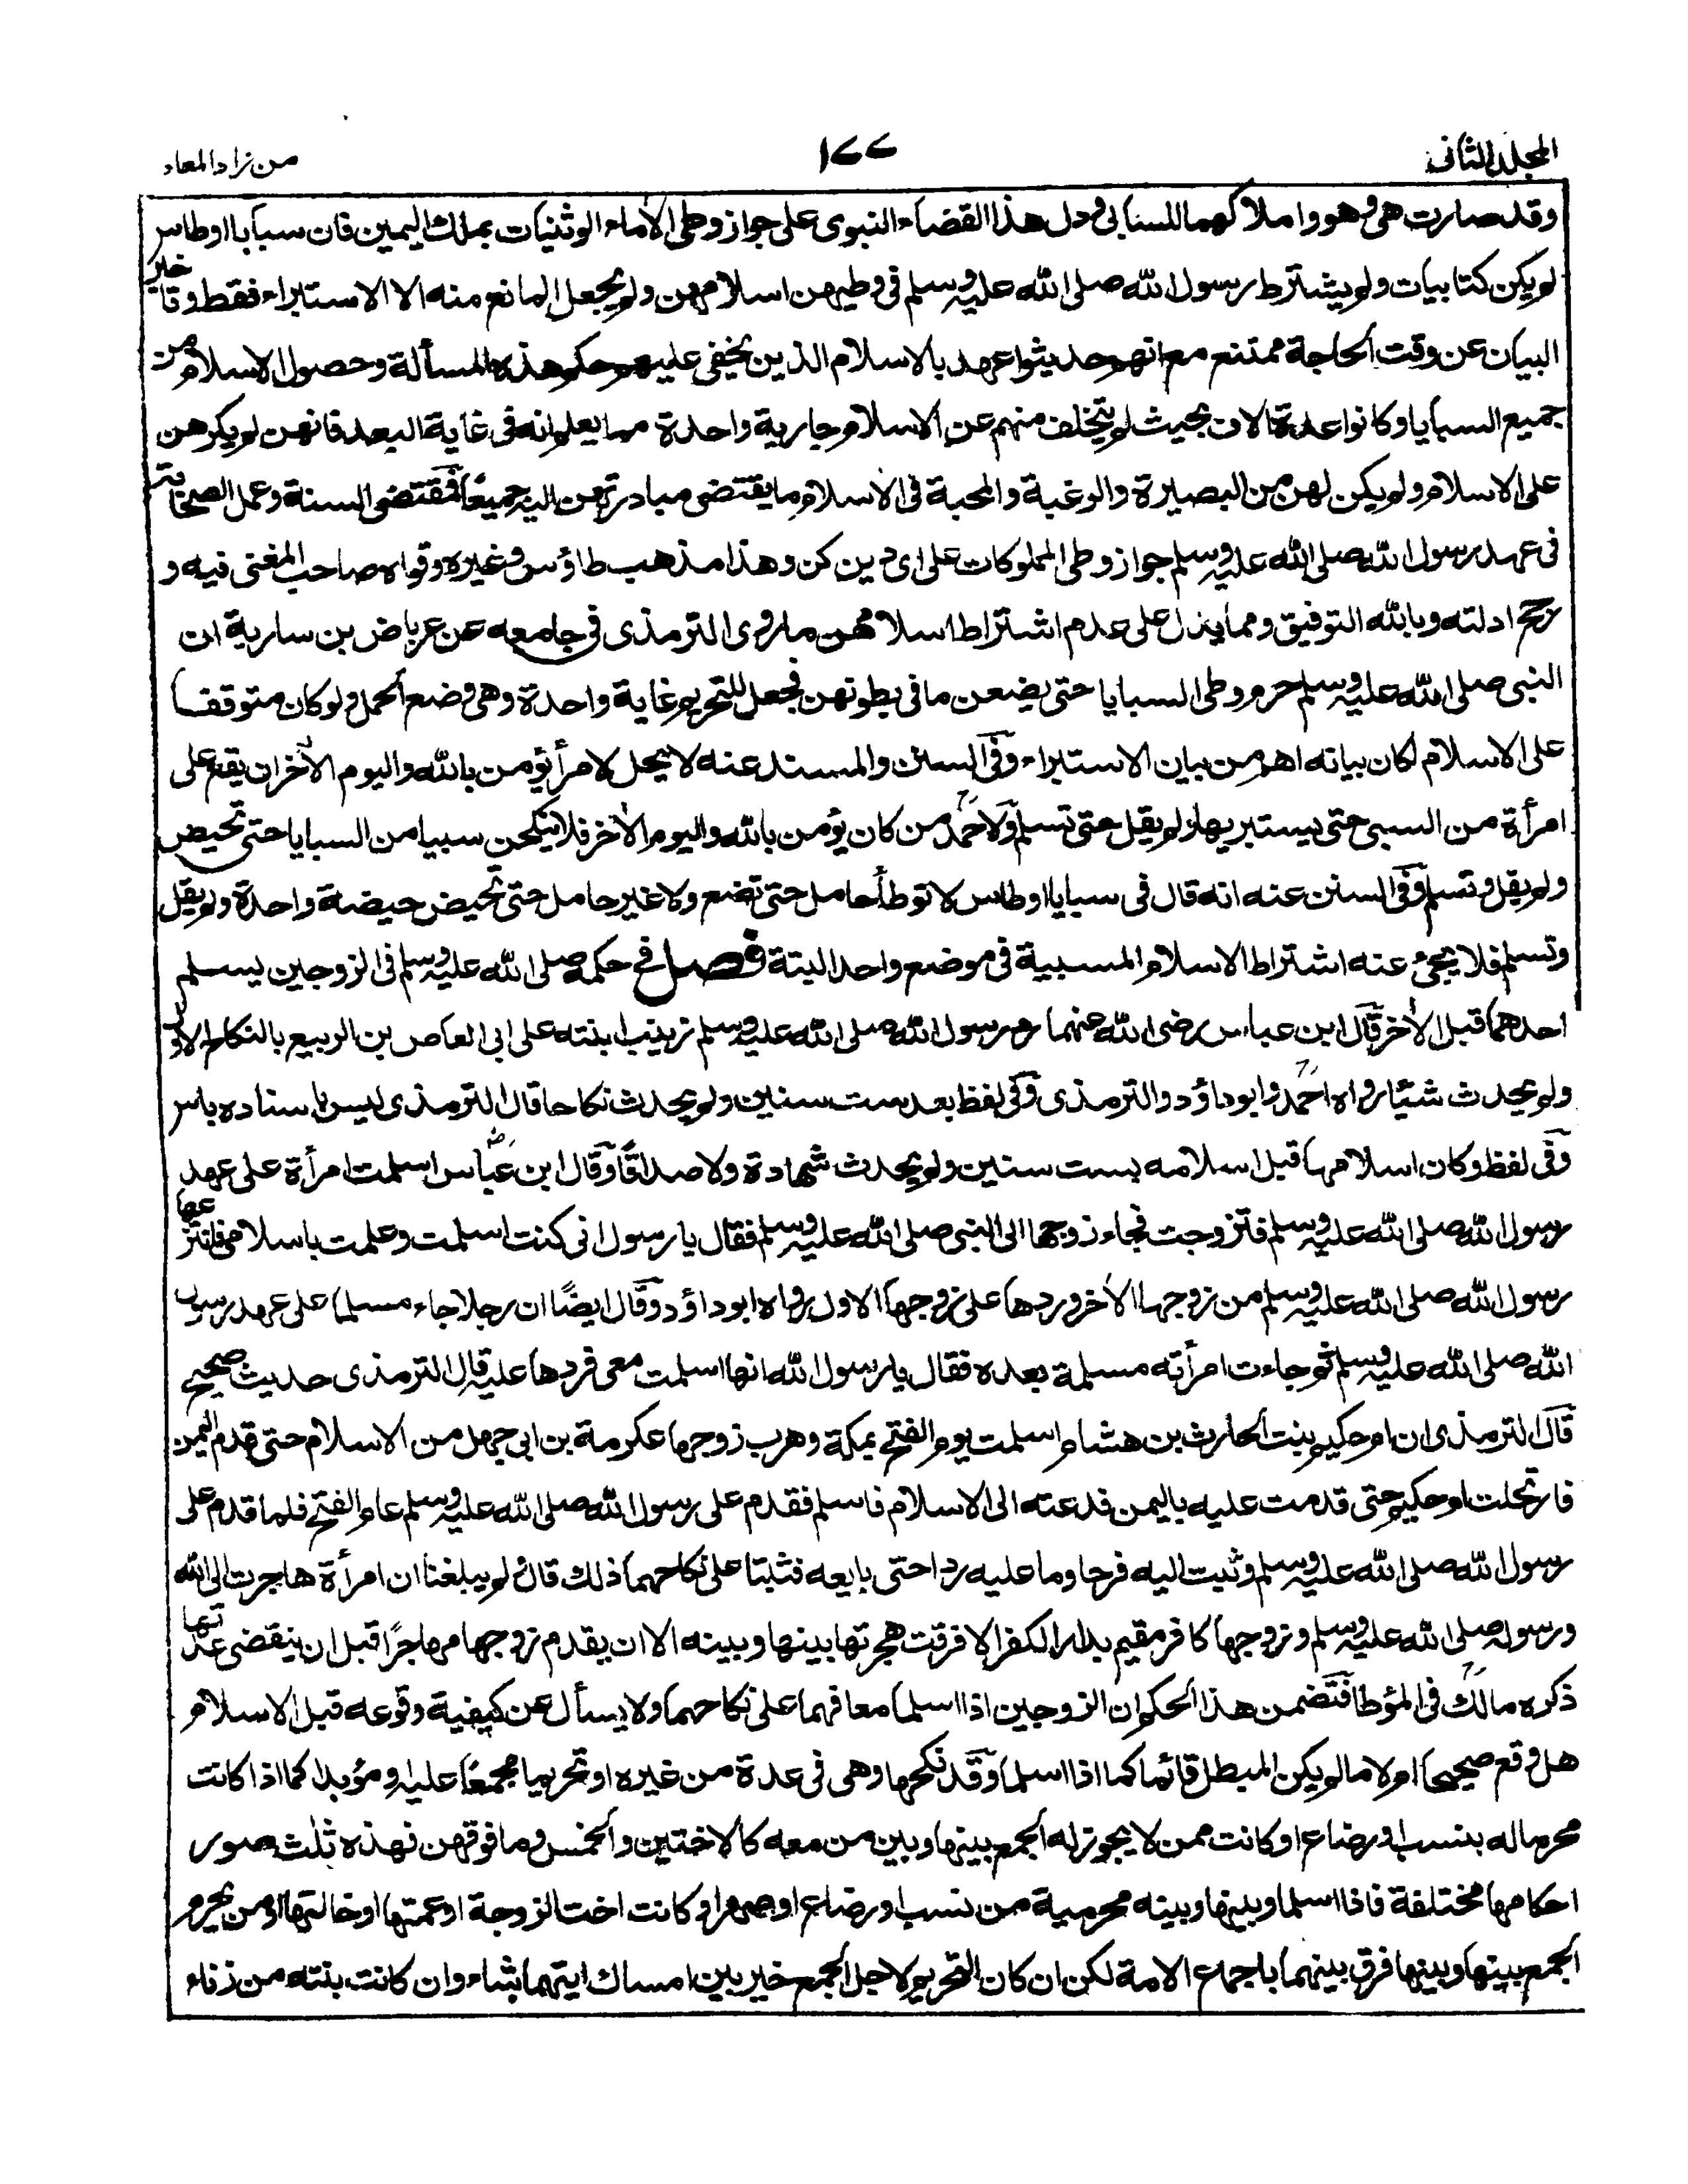 المجلد الثانى
١٧٧
من زاد المعاد
وقد صارت هى وهو واملاكهما للسابى ودل هذا القضاء النبوى على جواز وطى الاماء الوثنيات بملك اليمين فان سبايا اوطاس
لم يكن كتابيات ولم يشترط رسول الله صلى الله عليه وسلم فى وطيهن اسلامهن ولم يجعل المانع منه الا الاستبراء فقط وتاخير
البيان عن وقت الحاجة ممتنع مع انهم حديثوا عهد بالاسلام الذين يخفى عليهم حكم هذه المسألة وحصول الاسلام من
جميع السبايا وكانوا عدة الاف بحيث لم يتخلف منهم عن الاسلام جارية واحدة مما يعلم انه فى غاية البعد فانهن لم يكرهن
على الاسلام ولم يكن لهن من البصيرة والرغبة والمحبة فى الاسلام ما يقتضى مبادرتهن اليه جميعًا فمقتضى السنة وعمل الصحابة
فى عهد رسول الله صلى الله عليه وسلم جواز وطى المملوكات على اى دين كن وهذا مذهب طاؤس وغيره وقواه صاحب المغنى فيه و
رجح ادلته وبالله التوفيق ومما يدل على عدم اشتراط اسلامهن ما روى الترمذى فى جامعه عن عرباض بن سارية ان
النبى صلى الله عليه وسلم حرم وطى السبايا حتى يضعن ما فى بطونهن فجعل للتحريم غاية واحدة وهى وضع الحمل ولو كان متوقفا
على الاسلام لكان بيانه اهم من بيان الاستبراء وفى السنن والمسند عنه لا يحل لامرأ يؤمن بالله واليوم الآخر ان يقع على
امرأة من السبى حتى يستبريها ولم يقل حتى تسلم ولاحمد من كان يؤمن بالله واليوم الآخر فلا ينكحن سبيا من السبايا حتى تحيض
ولم يقل وتسلم وفى السنن عنه انه قال فى سبايا اوطاس لا توطأ حامل حتى تضع ولا غير حامل حتى تحيض حيضة واحدة ولم يقل
وتسلم فلا يجئ عنه اشتراط الاسلام المسبية فى موضع واحد البتة فصل فى حكمه صلى الله عليه وسلم فى الزوجين يسلم
احدهما قبل الآخر قال ابن عباس رضى الله عنهما رد رسول الله صلى الله عليه وسلم زينب ابنته على ابى العاص بن الربيع بالنكاح الاول
ولم يحدث شيئا رواه احمد وابوداؤد والترمذى وفى لفظ بعد ست سنين ولم يحدث نكاحا قال الترمذى ليس باسناده باس
وفى لفظ وكان اسلامها قبل اسلامه بست سنين ولم يحدث شهادة ولا صداقًا وقال ابن عباس اسلمت امرأة على عهد
رسول الله صلى الله عليه وسلم فتزوجت فجاء زوجها الى النبى صلى الله عليه وسلم فقال يا رسول انى كنت اسلمت وعلمت باسلامى فانتزعها
رسول الله صلى الله عليه وسلم من زوجها الآخر وردها على زوجها الاول رواه ابو داؤد وقال ايضًا ان رجلا جاء مسلما على عهد رسول
الله صلى الله عليه وسلم ثم جاءت امرأته مسلمة بعده فقال يا رسول الله انها اسلمت معى فردها عليه قال الترمذى حديث صحيح
قال الترمذى ان ام حكيم بنت الحارث بن هشام اسلمت يوم الفتح بمكة وهرب زوجها عكرمة بن ابى جهل من الاسلام حتى قدم اليمن
فارتحلت ام حكيم حتى قدمت عليه باليمن فدعته الى الاسلام فاسلم فقدم على رسول الله صلى الله عليه وسلم عام الفتح فلما قدم على
رسول الله صلى الله عليه وسلم وثبت اليه فرحا وما عليه ردا حتى بايعه فثبتا على نكاحهما ذلك قال ولم يبلغنا ان امرأة هاجرت الى الله
ورسوله صلى الله عليه وسلم وزوجها كافر مقيم بدار الكفر الا فرقت هجرتها بينها وبينه الا ان يقدم زوجها مهاجرًا قبل ان ينقضى عدتها
ذكره مالك فى المؤطا فتضمن هذا الحكم ان الزوجين اذا اسلما معا فهما على نكاحهما ولا يسأل عن كيفية وقوعه قبل الاسلام
هل وقع صحيحا ام لا ما لم يكن المبطل قائما كما اذا اسلما وقد نكحها وهى فى عدة من غيره او تحريما مجمعًا عليه ومؤبدا كما اذا كانت
محرما له بنسب او رضاع او كانت ممن لا يجوز له الجمع بينها وبين من معه كالاختين والخمس وما فوقهن فهذه ثلث صور
احكامها مختلفة فاذا اسلما وبينها وبينه محرمية من نسب او رضاع او صهر او كانت اخت الزوجة او عمتها او خالتها او من يحرم
الجمع بينها وبينها فرق بينهما باجماع الامة لكن ان كان التحريم لاجل الجمع خير بين امساك ايتهما شاء وان كانت بنته من زناء